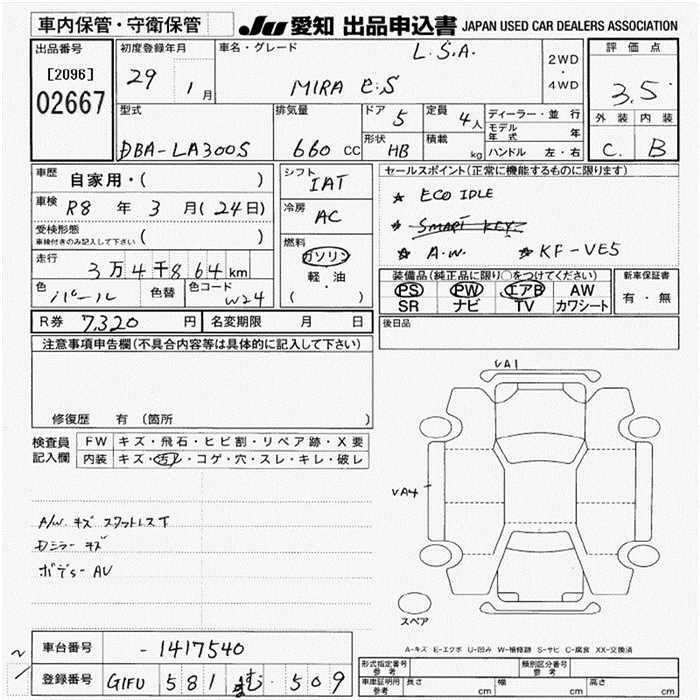 車内保管・守衛保管 JU 愛知 出品申込書 JAPAN USED CAR DEALERS ASSOCIATION
出品番号
[2096]
02667
初度登録年月
29 1月
車名・グレード
L.S.A.
MIRA e.S
2WD
・
4WD
評価点
3.5
外装 内装
C. B
型式
DBA-LA300S
排気量
660 CC
ドア 5
形状 HB
定員 4人
積載 kg
ディーラー・並行
モデル年式 年
ハンドル 左・右
車歴 自家用・( )
車検 R8 年 3 月(24日)
受検形態
車検付きのみ記入して下さい ( )
走行 3万4千864km
色 パール
色替
色コード W24
シフト IAT
冷房 AC
燃料
ガソリン
軽・油
( )
セールスポイント(正常に機能するものに限ります)
★ ECO IDLE
★ SMART KEY
★ A.W. ★ KF-VE5
装備品(純正品に限り○をつけてください)
PS PW エアB AW
SR ナビ TV カワシート
新車保証書
有・無
R券 7,320 円
名変期限 月 日
後日品
注意事項申告欄(不具合内容等は具体的に記入して下さい)
修復歴 有 (箇所 )
検査員記入欄
FW キズ・飛石・ヒビ割・リペア跡・X要
内装 キズ・汚レ・コゲ・穴・スレ・キレ・破レ
A/W キズ スタットレスT
Dミラー キズ
ボデs- AU
VA1
VA4
スペア
A-キズ E-エクボ U-凹み W-補修跡 S-サビ C-腐食 XX-交換済
車台番号 -1417540
登録番号 GIFU 581 む 509
形式指定番号 参考
類別区分番号 参考
車庫証明用 参考
長さ cm
幅 cm
高さ cm